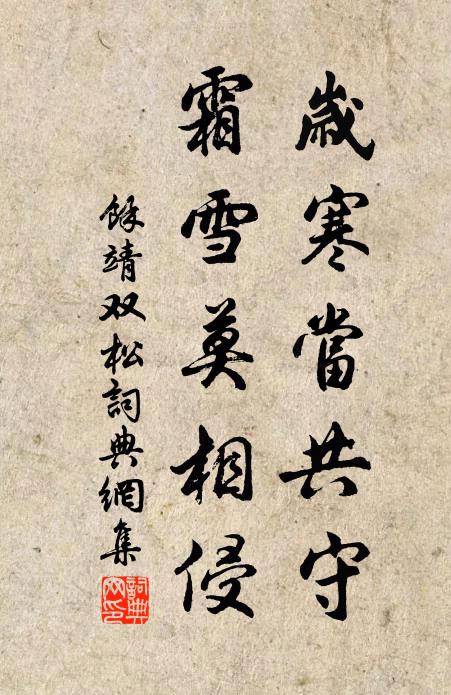 歲寒當共守
霜雪莫相侵
餘靖双松詞典網集
詞典
网印